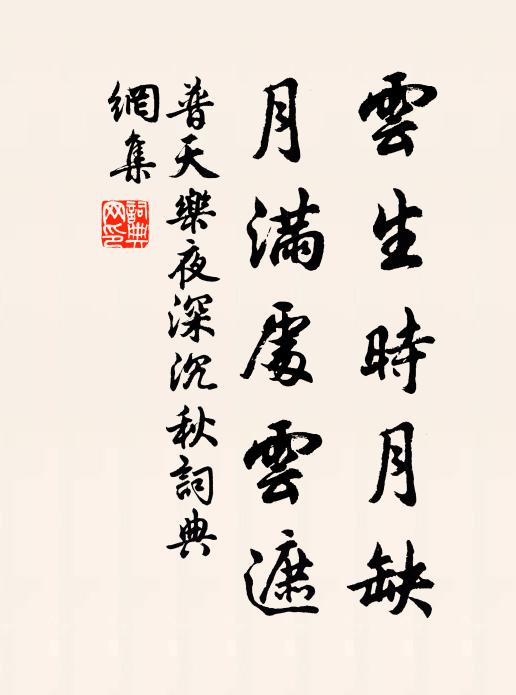 雲生時月缺
月滿處雲遮
普天樂夜深沉秋詞典
網集
詞典
网印